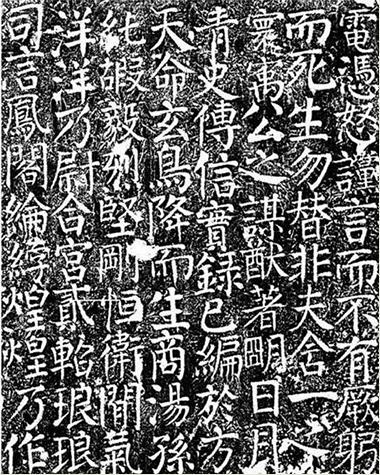 電憑怒讜言而不有厥躬
而死生勿替非夫舍一
寰寓公之謀猷著明日月
青史傳信實錄已編於方
天命玄鳥降而生商湯孫
純嘏毅烈堅剛恒衛間氣
洋洋乃尉合宮貳軺琅琅
司言鳳閣綸綍煌煌乃作